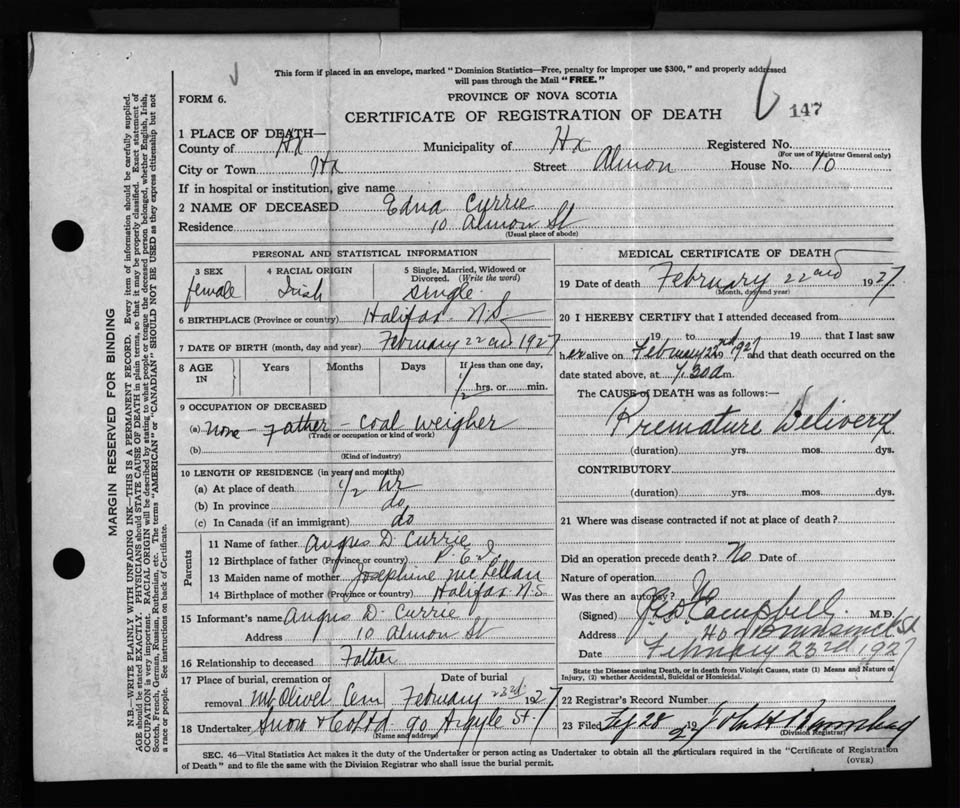 This form if placed in an envelope, marked "Dominion Statistics—Free, penalty for improper use $300," and properly addressed
will pass through the Mail "FREE."
FORM 6.
PROVINCE OF NOVA SCOTIA
147
CERTIFICATE OF REGISTRATION OF DEATH
1 PLACE OF DEATH—
County of Hx Municipality of Hx Registered No.
(For use of Registrar General only)
City or Town Hx Street Almon House No. 10
If in hospital or institution, give name
2 NAME OF DECEASED Edna Currie
Residence 10 Almon St
(Usual place of abode)
PERSONAL AND STATISTICAL INFORMATION
3 SEX 4 RACIAL ORIGIN 5 Single, Married, Widowed or Divorced. (Write the word)
female Irish single
6 BIRTHPLACE (Province or country) Halifax N.S.
7 DATE OF BIRTH (month, day and year) February 22nd 1927
8 AGE IN Years Months Days If less than one day,
1/2 hrs. or min.
9 OCCUPATION OF DECEASED
(a) none - Father - coal weigher
(Trade or occupation or kind of work)
(b)
(Kind of industry)
10 LENGTH OF RESIDENCE (in years and months)
(a) At place of death 1/2 hr
(b) In province do
(c) In Canada (if an immigrant) do
Parents
11 Name of father Angus D. Currie
12 Birthplace of father (Province or country) P.E.I.
13 Maiden name of mother Josephine McLellan
14 Birthplace of mother (Province or country) Halifax N.S.
15 Informant's name Angus D. Currie
Address 10 Almon St
16 Relationship to deceased Father
17 Place of burial, cremation or removal Date of burial
Mt Olivet Cem February 22nd 1927
18 Undertaker Snow & Co Ltd 90 Argyle St.
(Name and address)
MEDICAL CERTIFICATE OF DEATH
19 Date of death February 22nd 1927
(Month, day and year)
20 I HEREBY CERTIFY that I attended deceased from
19 to 19 that I last saw
her alive on February 22nd 1927 and that death occurred on the
date stated above, at 7.30 a m.
The CAUSE of DEATH was as follows:—
Premature Delivery
(duration) yrs. mos. dys.
CONTRIBUTORY
(duration) yrs. mos. dys.
21 Where was disease contracted if not at place of death?
Did an operation precede death? No Date of
Nature of operation
Was there an autopsy? No
(Signed) Campbell M.D.
Address Brunswick St
Date February 23rd 1927
State the Disease causing Death, or in death from Violent Causes, state (1) Means and Nature of
Injury, (2) whether Accidental, Suicidal or Homicidal.
22 Registrar's Record Number
23 Filed 28 1927 John H
(Division Registrar)
SEC. 46—Vital Statistics Act makes it the duty of the Undertaker or person acting as Undertaker to obtain all the particulars required in the "Certificate of Registration
of Death" and to file the same with the Division Registrar who shall issue the burial permit.
(OVER)
MARGIN RESERVED FOR BINDING
N.B.—WRITE PLAINLY WITH UNFADING INK—THIS IS A PERMANENT RECORD. Every item of information should be carefully supplied.
AGE should be stated EXACTLY. PHYSICIANS should STATE CAUSE OF DEATH in plain terms, so that it may be properly classified. Exact statement of
OCCUPATION is very important. RACIAL ORIGIN will be described by stating to what people or tongue the deceased person belonged, whether English, Irish,
Scotch, French, German, Russian, Ruthenian, etc. The terms "AMERICAN" or "CANADIAN" SHOULD NOT BE USED as they express citizenship but not
a race or people. See instructions on back of Certificate.